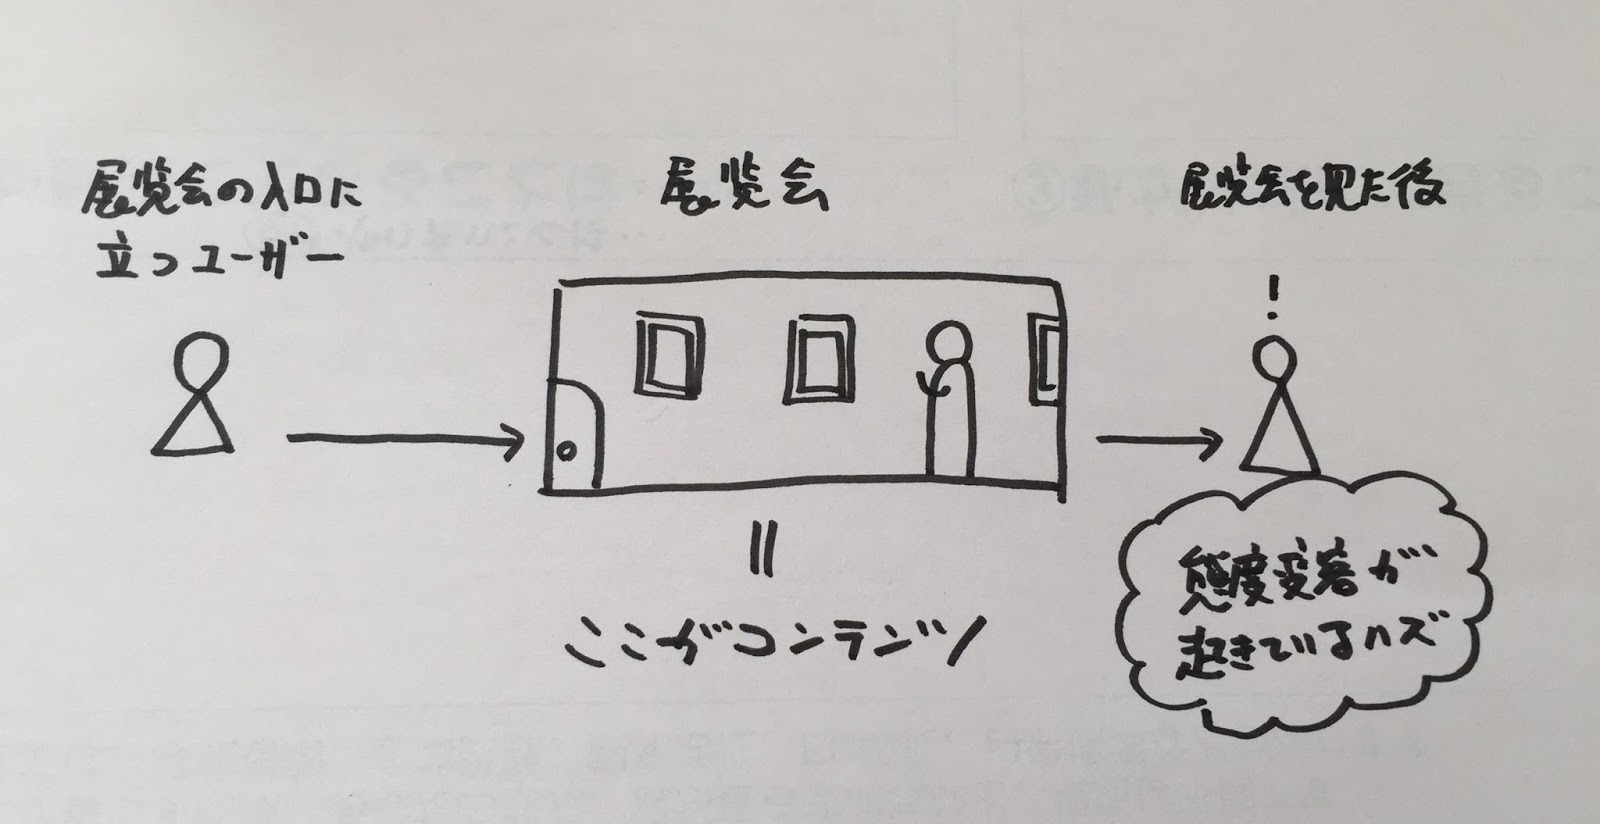 展覧会の入口に
立つユーザー
展覧会
展覧会を見た後
!
=
ここがコンテンツ
態度変容が
起きているハズ